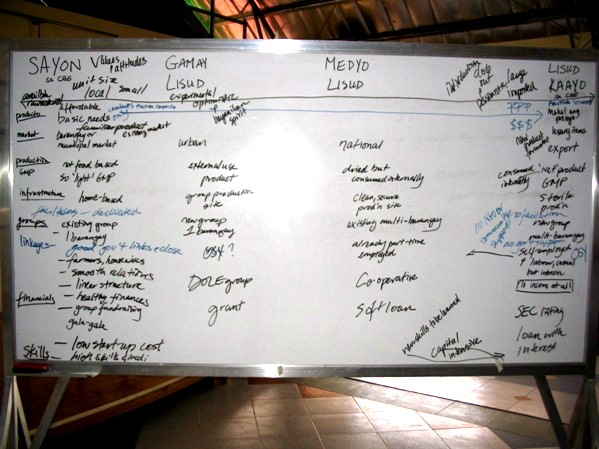 SAYON Values & Attitudes GAMAY MEDYO LISUD
sa CBE unit size LISUD LISUD KAAYO
local small experimental imported sa CBE
optimistic
spirit
products affordable ???
basic needs only $$$
market familiar product existing market luxury items
barangay or
municipal market urban national export
new product
production not food based external use dried but consumed 'wet' product
GMP so 'light' GMP product consumed internally internally GMP
infrastructure home-based group production clean, secure sterile
site prod'n site prod'n
facilitators - dedicated no facilitators
groups existing group new group existing multi-barangay new group
1 barangay 1 barangay multi-barangay
linkages good gov't links close ? already part-time self-employed
employed
- farmers, housewives + labour, casual
- smooth relations but intensive
- linear structure DOLE group Co-operative no income at all
financials - healthy finances grant soft loan SEC listing
- group fundraising
gala-gala new skills to be learned loan with
- low start-up cost capital interest
skills - high skills intensive